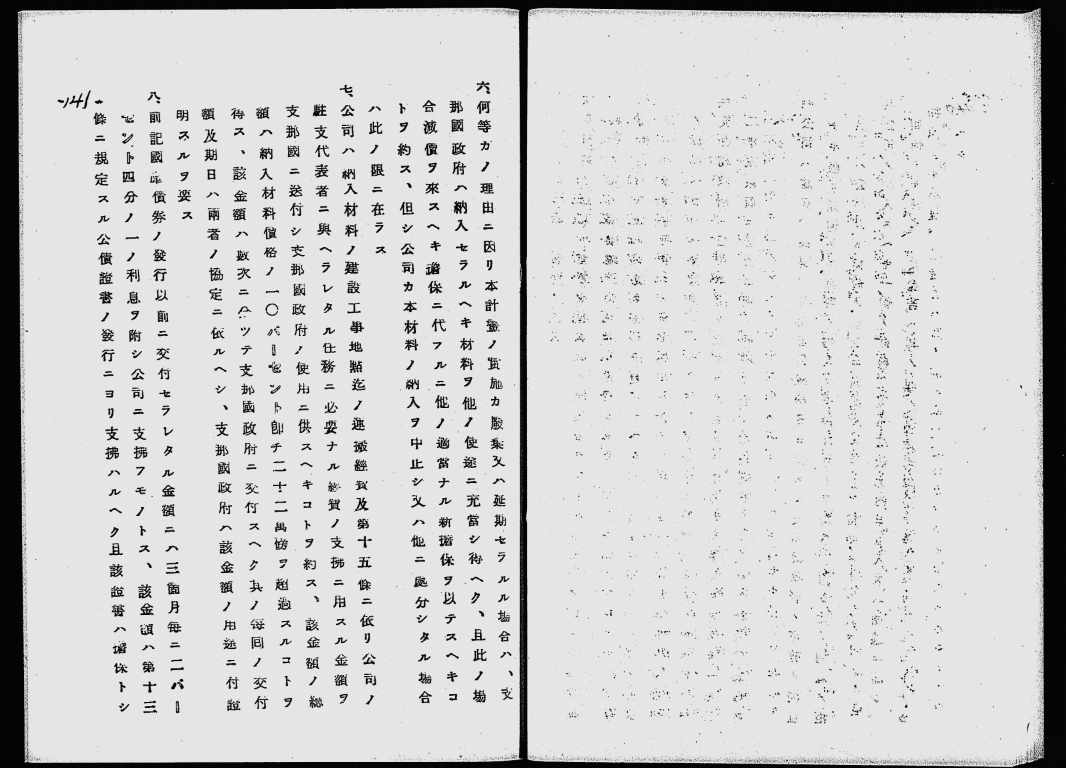 六、何等カノ理由ニ因リ本計畫ノ實施カ廢棄又ハ延期セラルル場合ハ、支
那國政府ハ納入セラルヘキ材料ヲ他ノ使途ニ充當シ得ヘク、且此ノ場
合減價ヲ來スヘキ擔保ニ代フルニ他ノ適當ナル新擔保ヲ以テスヘキコ
トヲ約ス、但シ公司カ本材料ノ納入ヲ中止シ又ハ他ニ處分シタル場合
ハ此ノ限ニ在ラス
七、公司ハ納入材料ノ建設工事地點迄ノ運搬經費及第十五條ニ依リ公司ノ
駐支代表者ニ與ヘラレタル任務ニ必要ナル總費ノ支拂ニ用スル金額ヲ
支那國ニ送付シ支那國政府ノ使用ニ供スヘキコトヲ約ス、該金額ノ總
額ハ納入材料價格ノ一〇パーセント卽チ二十二萬磅ヲ超過スルコトヲ
得ス、該金額ハ數次ニ分ツテ支那國政府ニ交付スヘク其ノ每回ノ交付
額及期日ハ兩者ノ協定ニ依ルヘシ、支那國政府ハ該金額ノ用途ニ付證
明スルヲ要ス
八、前記國庫債券ノ發行以前ニ交付セラレタル金額ニハ三箇月每ニ二パー
セント四分ノ一ノ利息ヲ附シ公司ニ支拂フモノトス、該金額ハ第十三
條ニ規定スル公債證書ノ發行ニヨリ支拂ハルヘク且該證書ハ擔保トシ
-141-